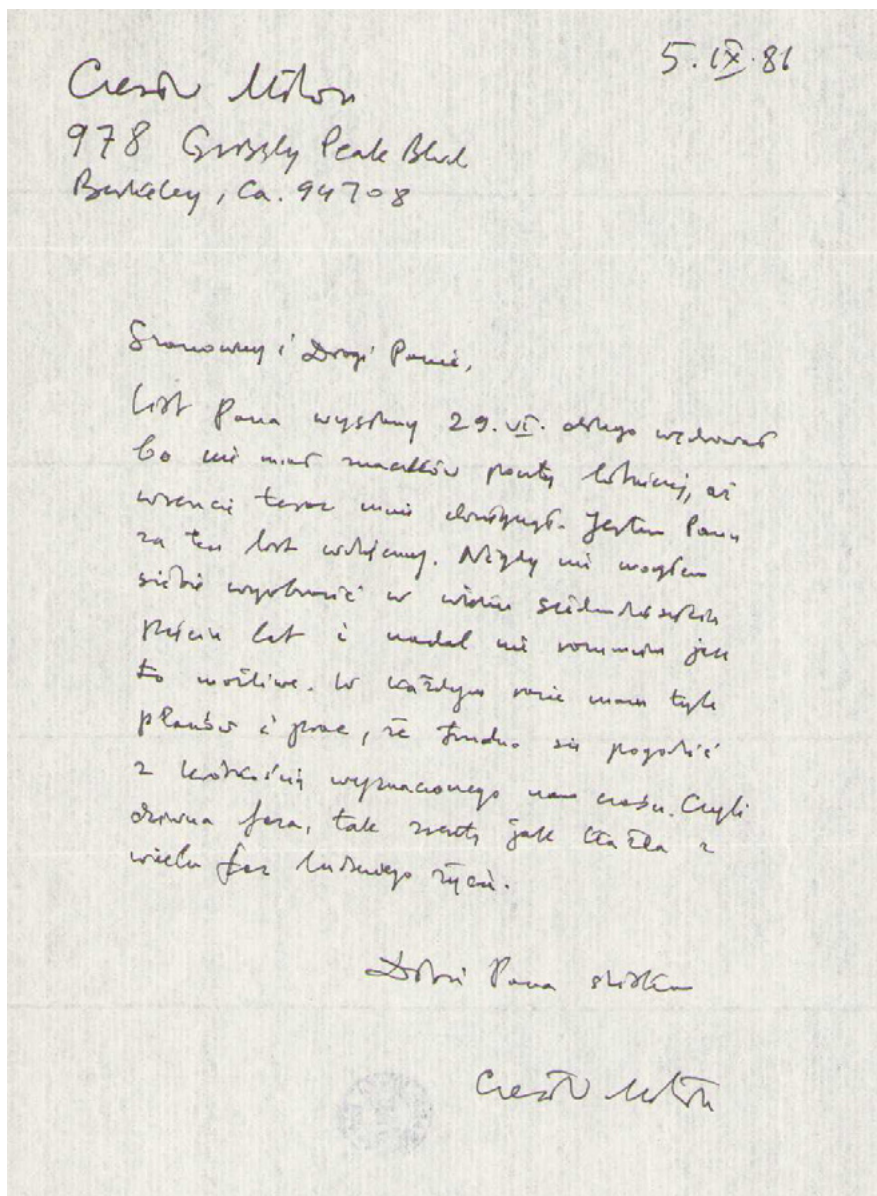 5.IX.86
Czesław Miłosz
978 Grizzly Peak Blvd
Berkeley, Ca. 94708
Szanowny i Drogi Panie,
List Pana wysłany 29.VI. długo wędrował
bo nie miał znaczków poczty lotniczej, aż
wreszcie teraz mnie doścignął. Jestem Panu
za ten list wdzięczny. Nigdy nie mogłem
siebie wyobrazić w wieku siedemdziesięciu
pięciu lat i nadal nie rozumiem jak
to możliwe. W każdym razie mam tyle
planów i prac, że trudno się pogodzić
z krótkością wyznaczonego nam czasu. Czyli
dziwna faza, tak zresztą jak każda z
wielu faz ludzkiego życia.
Dłoń Pana ściskam
Czesław Miłosz